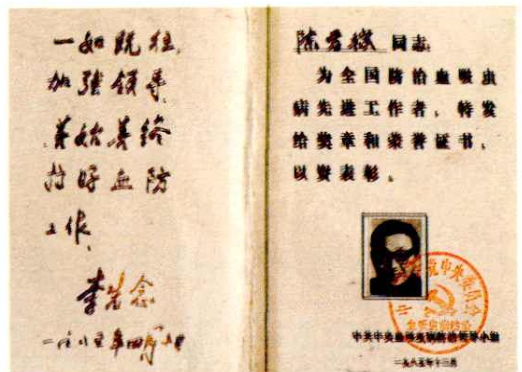 一如既往,
加强领导,
善始善终
搞好血防
工作。
李先念
一九八五年四月
陈 同志
为全国防治血吸虫
病先进工作者,特发
给奖章和荣誉证书,
以资表彰。
中共中央血吸虫病防治领导小组
一九八五年十二月